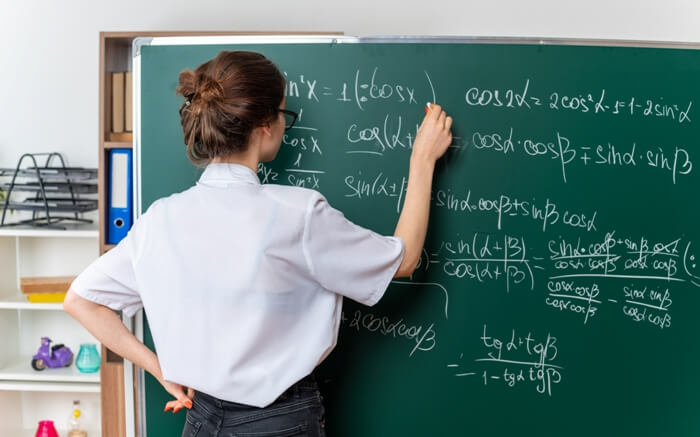 in²x = 1 (:cosx)
cos2α = 2cos²α-1 = 1-2sin²α
cos(α+ = cosα·cosβ∓sinα·sinβ
cosx
1
sin²x
sin(α±β) sinα·cosβ±sinβcosα
) = sin(α+β) / cos(α+β) = sinα·cosβ+sinβcosα / cosαcosβ cosαcosβ (:
cosαcosβ / cosαcosβ - sinαsinβ / cosαcosβ
+2cosαcosβ
= tgα+tgβ / 1-tgαtgβ